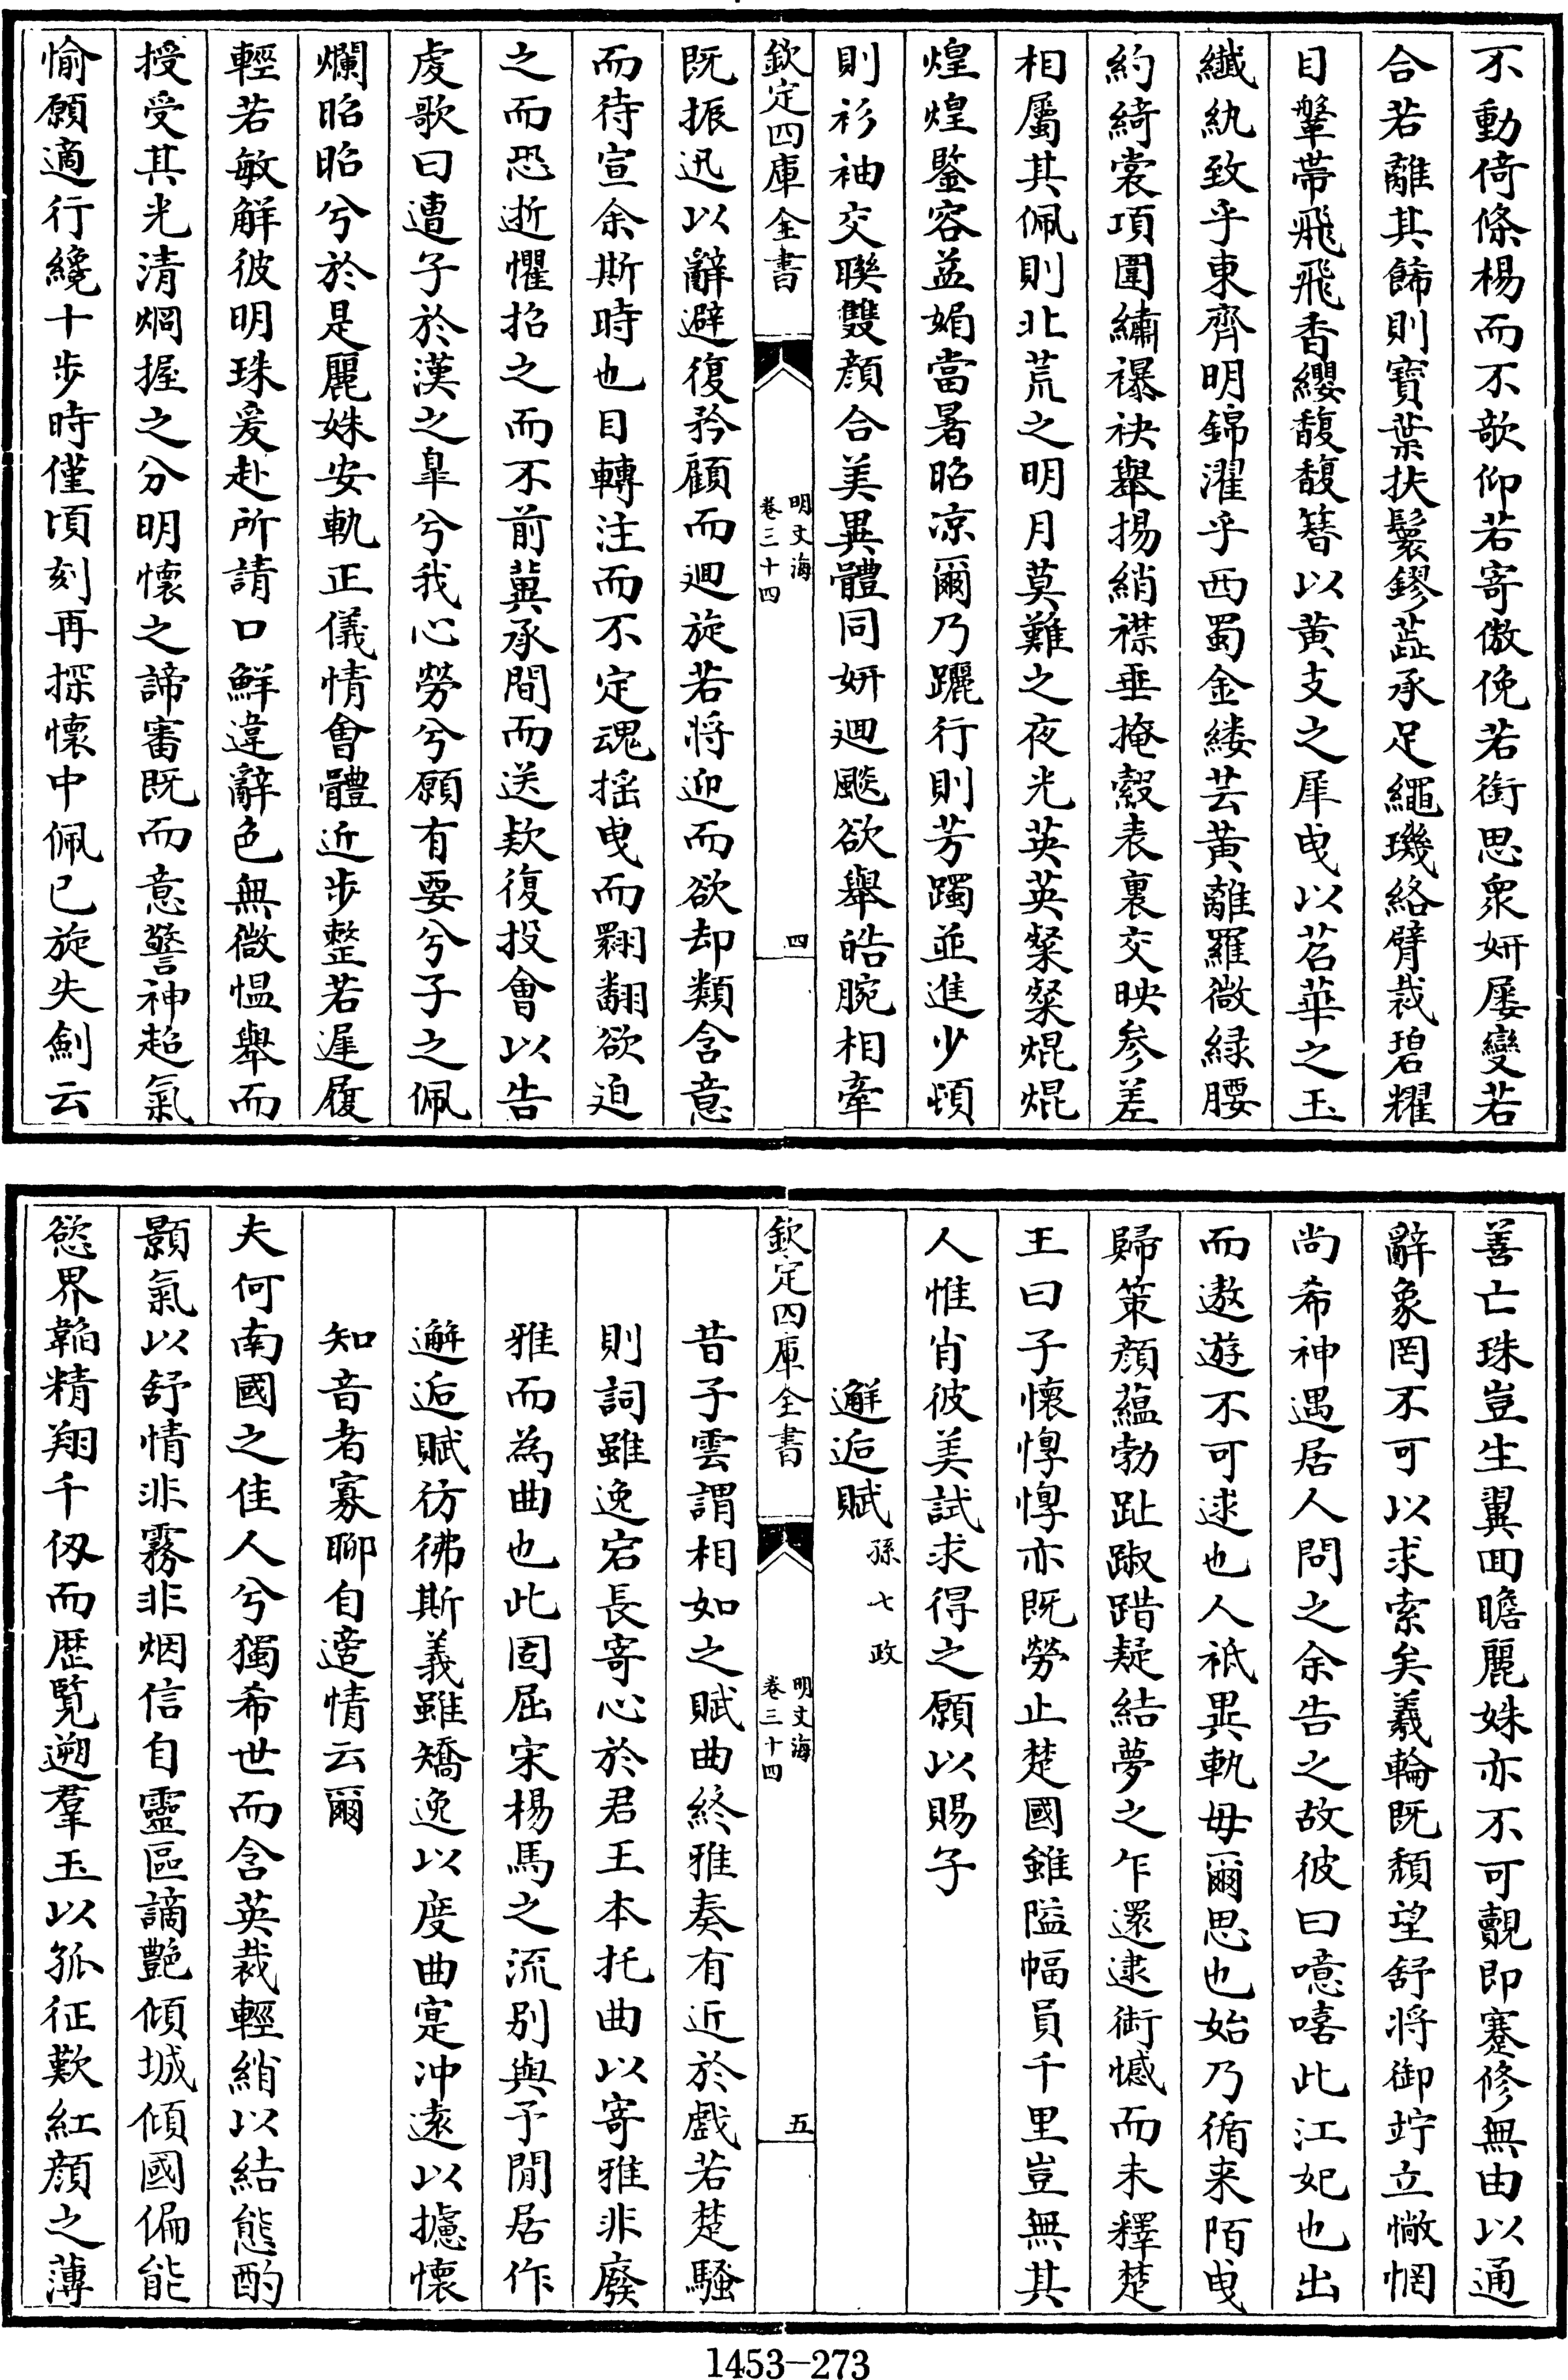 不動倚條楊而不欹仰若寄傲俛若銜思衆妍屢變若
合若離其飾則寶葉扶鬟鏐蕋承足繩璣絡臂裁碧耀
目鞶帶飛飛香纓馥馥簪以黄支之犀曳以苕華之玉
纖紈致乎東齊明錦濯乎西蜀金縷芸黄離羅㣲緑腰
約綺裳項圍繡襮袂舉揚綃襟垂掩縠表裏交映參差
相屬其佩則北荒之明月莫難之夜光英英粲粲焜焜
煌煌鑒容益媚當暑昭凉爾乃躧行則芳躅並進少頃
則衫袖交聨雙顔合美異體同妍廻颷欲舉皓腕相牽
欽定四庫全書
明文海
卷三十四
四
既振迅以辭避復矜顧而廻旋若將迎而欲却類含意
而待宣余斯時也目轉注而不定魂摇曳而翾翻欲迫
之而恐逝懼招之而不前冀承間而送欵復投會以告
虔歌曰遭子於漢之臯兮我心勞兮願有要兮子之佩
爛昭昭兮於是麗姝安軌正儀情會體近步整若遲履
輕若敏解彼明珠爰赴所請口鮮違辭色無㣲愠舉而
授受其光清烱握之分明懷之諦審既而意警神超氣
愉願適行纔十步時僅頃刻再探懷中佩已旋失劍云
善亡珠豈生翼回瞻麗姝亦不可覿即蹇修無由以通
辭象罔不可以求索矣羲輪既頹望舒將御竚立憿惘
尚希神遇居人問之余告之故彼曰噫嘻此江妃也出
而遨遊不可逑也人祗異軌毋爾思也始乃循来陌曳
歸策顔蘊勃趾踧踖疑結夢之乍還逮銜憾而未釋楚
王曰子懷慱慱亦既勞止楚國雖隘幅員千里豈無其
人惟肖彼美試求得之願以賜子
邂逅賦孫七政
欽定四庫全書
明文海
卷三十四
五
昔子雲謂相如之賦曲終雅奏有近於戲若楚騷
則詞雖逸宕長寄心於君王本托曲以寄雅非廢
雅而為曲也此固屈宋楊馬之流别與予閒居作
邂逅賦彷彿斯義雖矯逸以度曲寔冲遠以攄懷
知音者寡聊自適情云爾
夫何南國之佳人兮獨希世而含英裁輕綃以結態酌
顥氣以舒情非霧非烟信自靈區謫艶傾城傾國偏能
慾界韜精翔千仭而歴覧遡羣玉以孤征歎紅顔之薄
1453—273